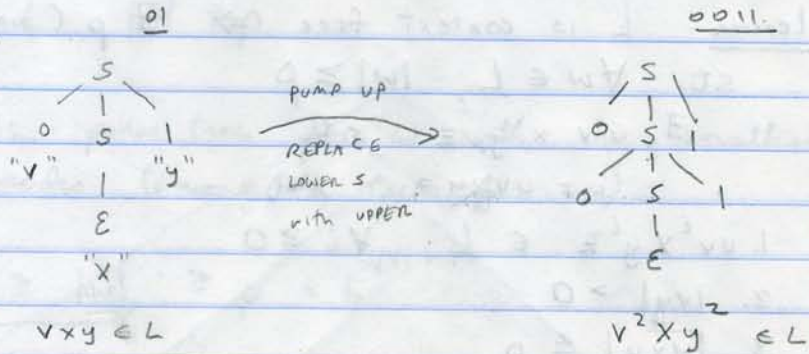 01
0011.
S
0 S 1
"v" "y"
ε
"x"
vxy ∈ L
PUMP UP
REPLACE
LOWER S
with UPPER
S
0 S 1
0 S 1
ε
v² x y² ∈ L